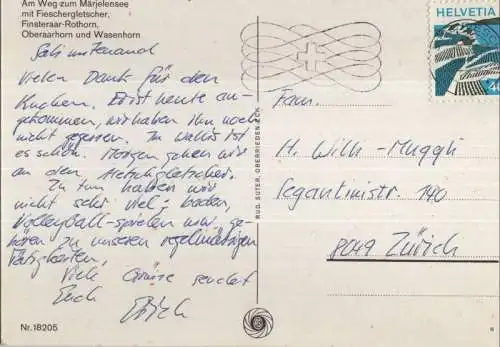 Am Weg zum Märjelensee
mit Fieschergletscher,
Finsteraar-Rothorn,
Oberaarhorn und Wasenhorn
Vielen Dank für den
Kuchen. Er ist heute an-
gekommen, wir haben ihn noch
nicht gegessen. Im Wallis ist
es schön. Morgen gehen wir
an den Aletschgletscher.
Zu tun haben wir
nicht sehr viel - baden,
Volleyball-spielen usw. ge-
hören zu unseren regelmässigen
Tätigkeiten.
Viele Grüsse sendet
Euch
Nr. 18205
RUD. SUTER, OBERRIEDEN-ZCH
HELVETIA
40
Fam.
H. Willi-Muggli
Segantinistr. 140
8049 Zürich